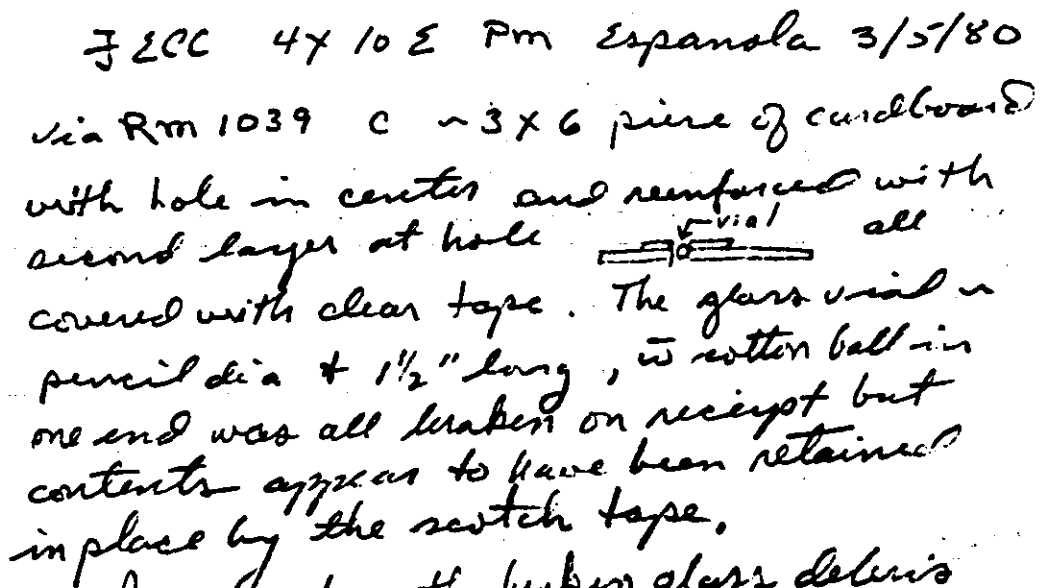 ECC 4 x 10 E Pm Espanola 3/5/80
via Rm 1039 c ~3 x 6 piece of cardboard
with hole in center and reenforced with
second layer at hole vial all
covered with clear tape. The glass vial
pencil dia + 1 1/2" long, w̄ cotton ball in
one end was all broken on receipt but
contents appear to have been retained
in place by the scotch tape.
broken glass debris